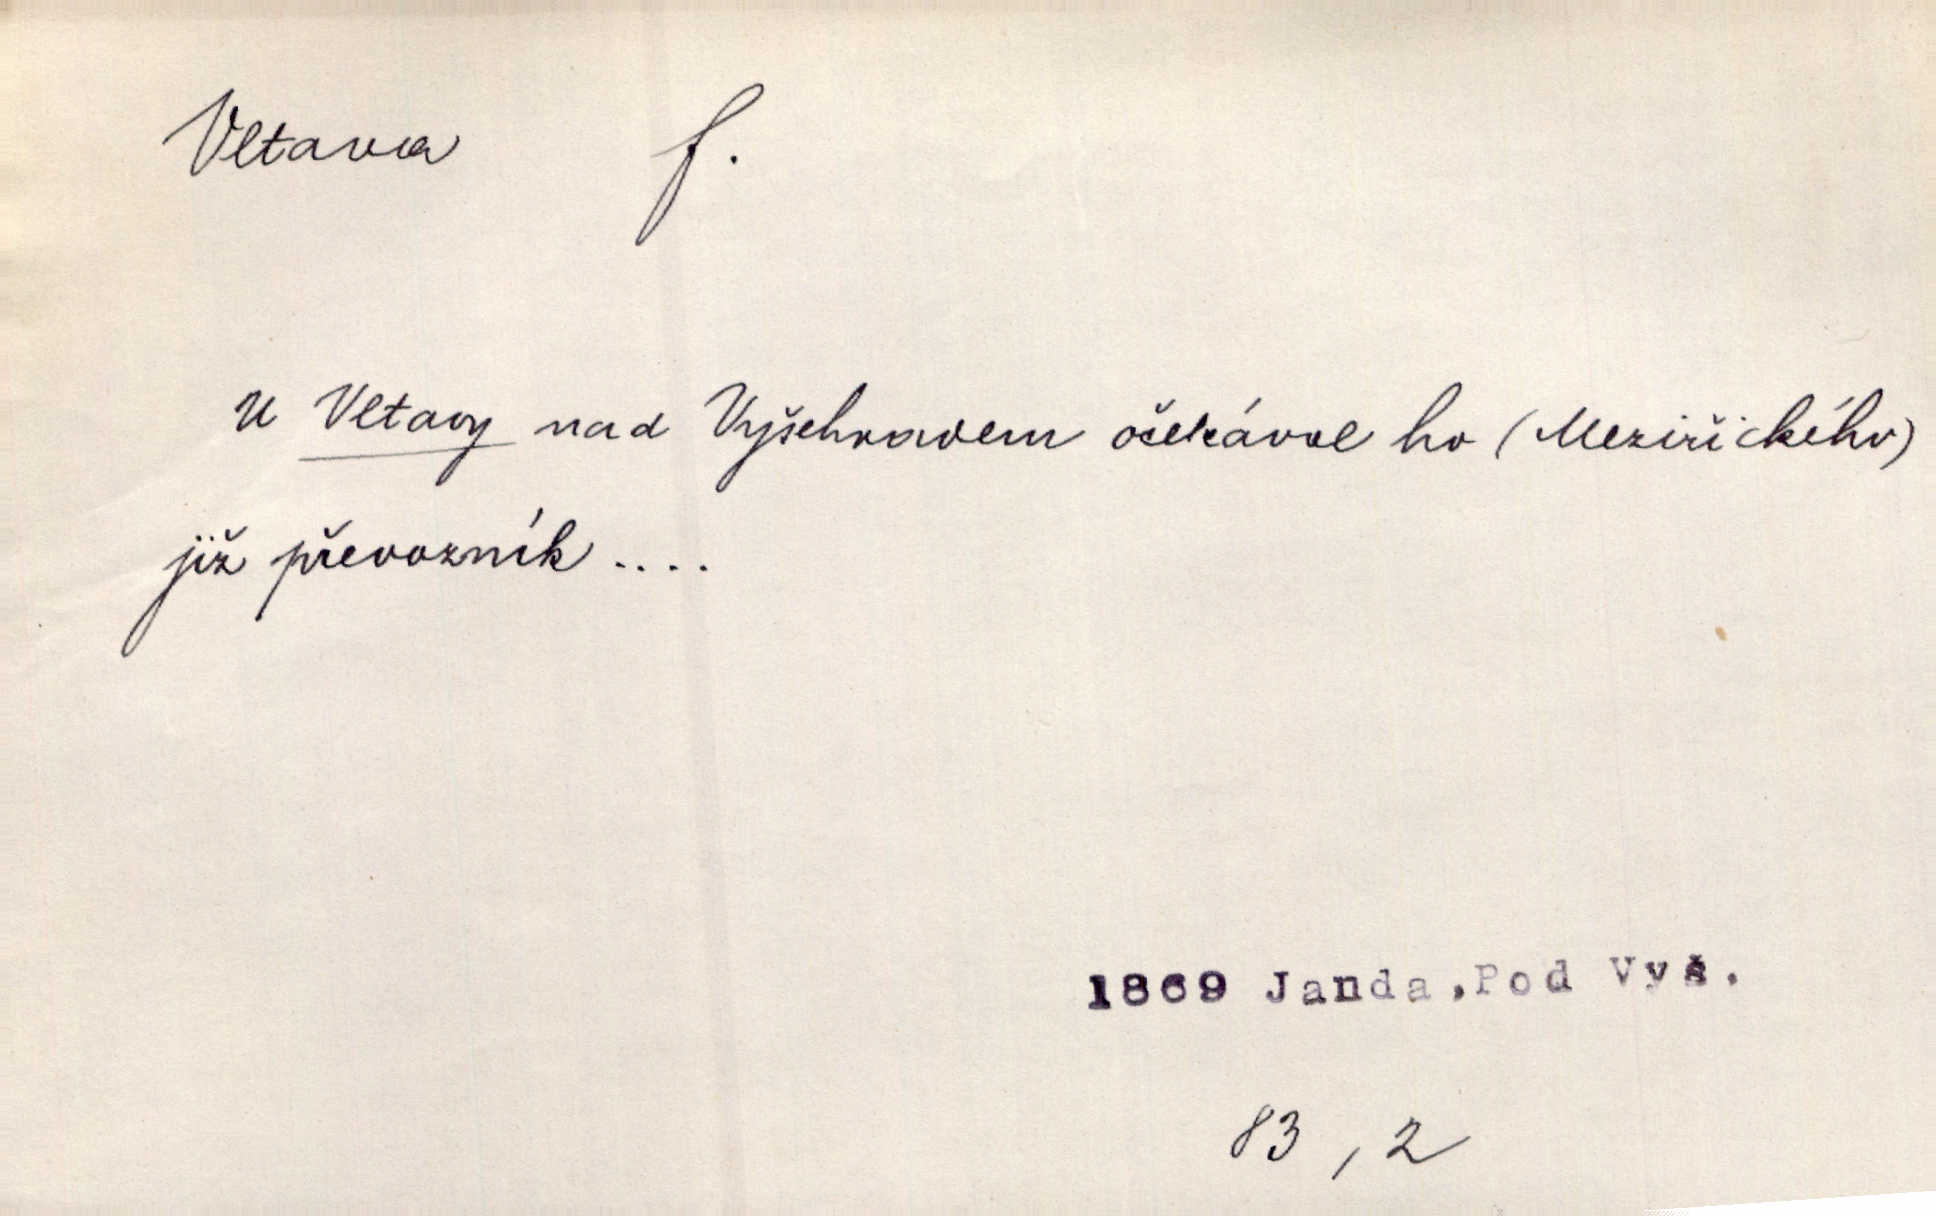 Vltava f.
U Vltavy nad Vyšehradem očekával ho (Meziříckého)
již převozník ....
1869 Janda,Pod Vyš.
83, 2